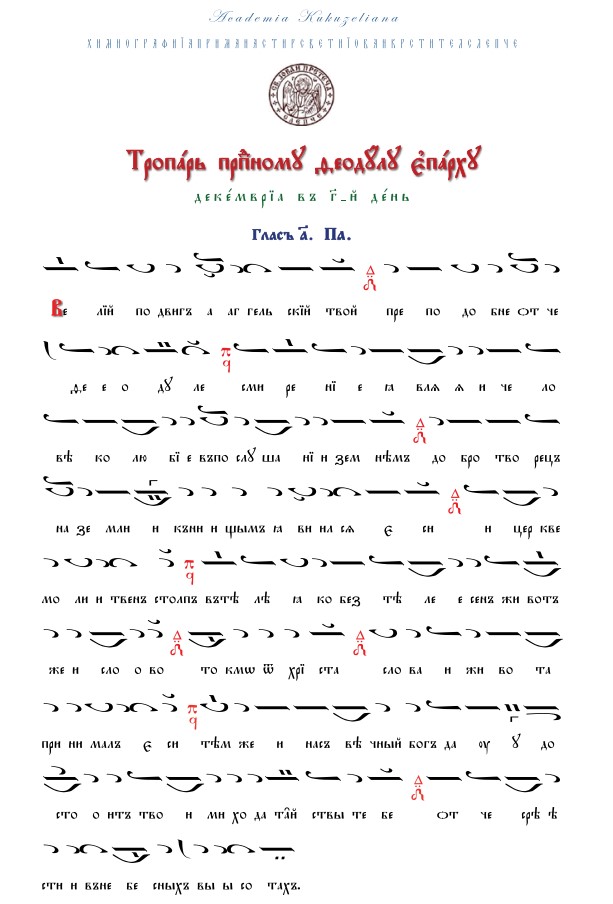 Academia Kukuzeliana
ХИМНОГРАФИЈА ПРИ МАНАСТИР СВЕТИ ЈОВАН КРСТИТЕЛ СЛЕПЧЕ
СВ. ЈОВАН ПРЕТЕЧА СЛЕПЧЕ
Тропа́рь прпⷣному Ѳеоду́лу є҆па́рху
деке́мврїа въ г҃-й де́нь
Гласъ а҃. Па.
Ве лїй по двигъ а аг гель скїй твой пре по до бне ѿ че
Ѳе е о ду ле сми ре нї е ꙗ влѧ ѧ и че ло
вѣ ко лю бї е въпо слу ша нї и зем нѣмъ до бро тво рецъ
на зе мли и къни и щымъ ꙗ ви ил сѧ є си и цер кве
мо ли и твенъ столпъ вътѣ лѣ ꙗ ко без тѣ ле е сенъ жи вотъ
же и сло о во то кмѡ ѿ хрї ста сло ва и жи во та
при ни малъ є си тѣм же и насъ вѣ чный богъ да ѹ ꙋ до
сто о итъ тво и ми хо да та́й ствы те бе ѿ че срѣ ѣ
сти и въне бе сныхъ вы ы со тахъ.